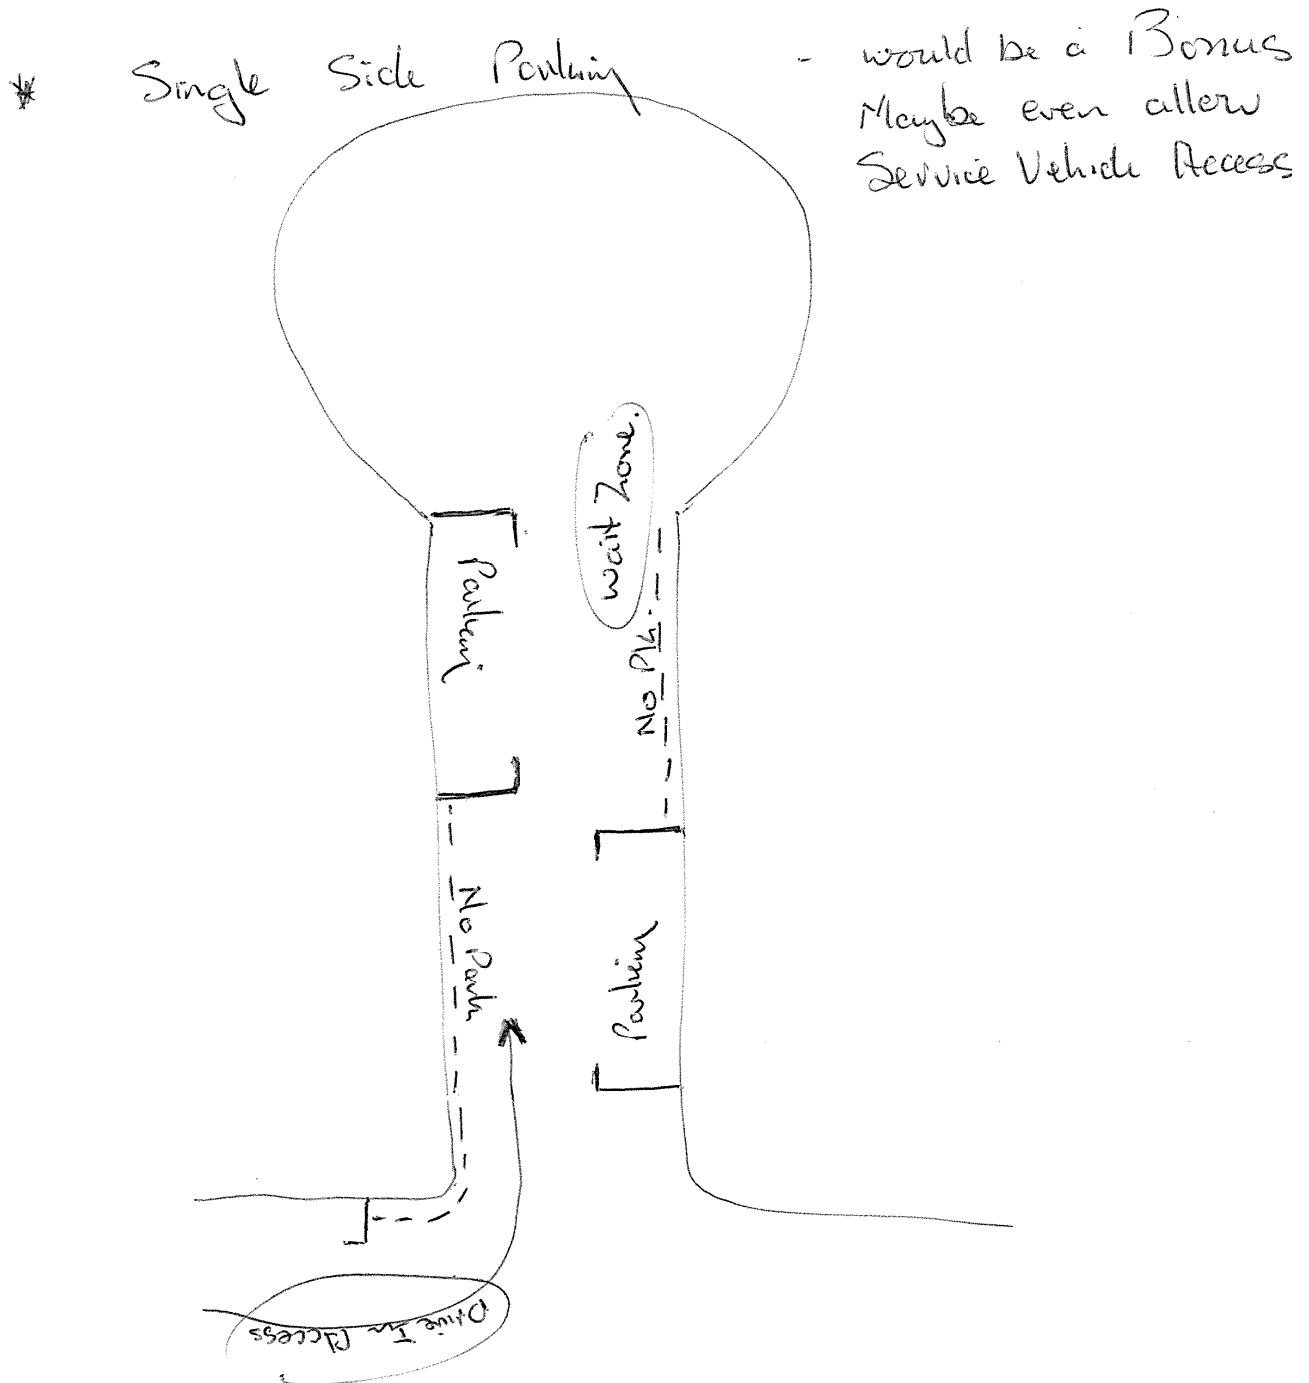 * Single Side Parking
- would be a Bonus
Maybe even allow
Service Vehicle Access
Wait Zone.
Parking
No Pk.
No Park
Parking
Drive In Access